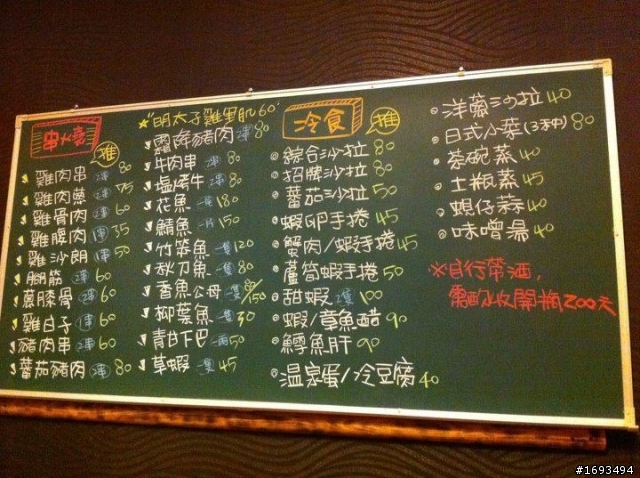 串燒
推
雞肉串 2串 80
雞肉蔥 2串 75
雞骨肉 2串 60
雞腹肉 1串 35
雞沙朗 1串 50
腳筋 2串 60
膝骨 2串 60
雞白子 1串 60
豬肉串 2串 60
蕃茄豬肉 2串 80
★"明太子雞里肌60"
霜降豬肉 2串 80
牛肉串 2串 80
塩烤牛 2串 80
花魚 180
鯖魚 150
竹筴魚 一隻 120
秋刀魚 一隻 80
香魚公母 一隻 80/150
柳葉魚 一隻 30
青甘下巴 50
草蝦 一隻 45
冷食
推
綜合沙拉 80
招牌沙拉 80
蕃茄沙拉 50
蝦卵手捲 45
蟹肉/蝦手捲 45
蘆筍蝦手捲 50
甜蝦 2隻 100
蝦/章魚醋 90
鱈魚肝 90
温泉蛋/冷豆腐 40
洋蔥沙拉 40
日式小菜(3本中) 80
茶碗蒸 40
土瓶蒸 45
蜆仔蒜 40
味噌湯 40
※自行帶酒,
酌收開瓶200元
#1693494